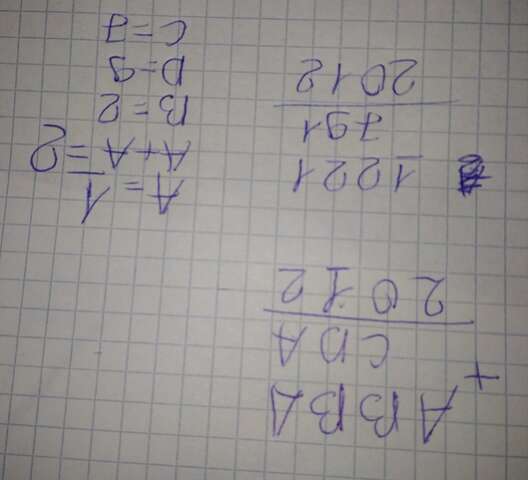 ABBA
+
CDA
2012
1221
791
2012
A=1
A+A=2
B=2
D=9
C=7